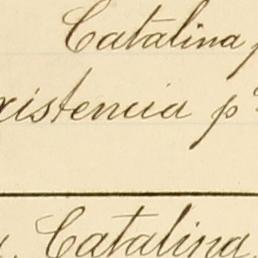 Catalina
xistencia p
Catalina